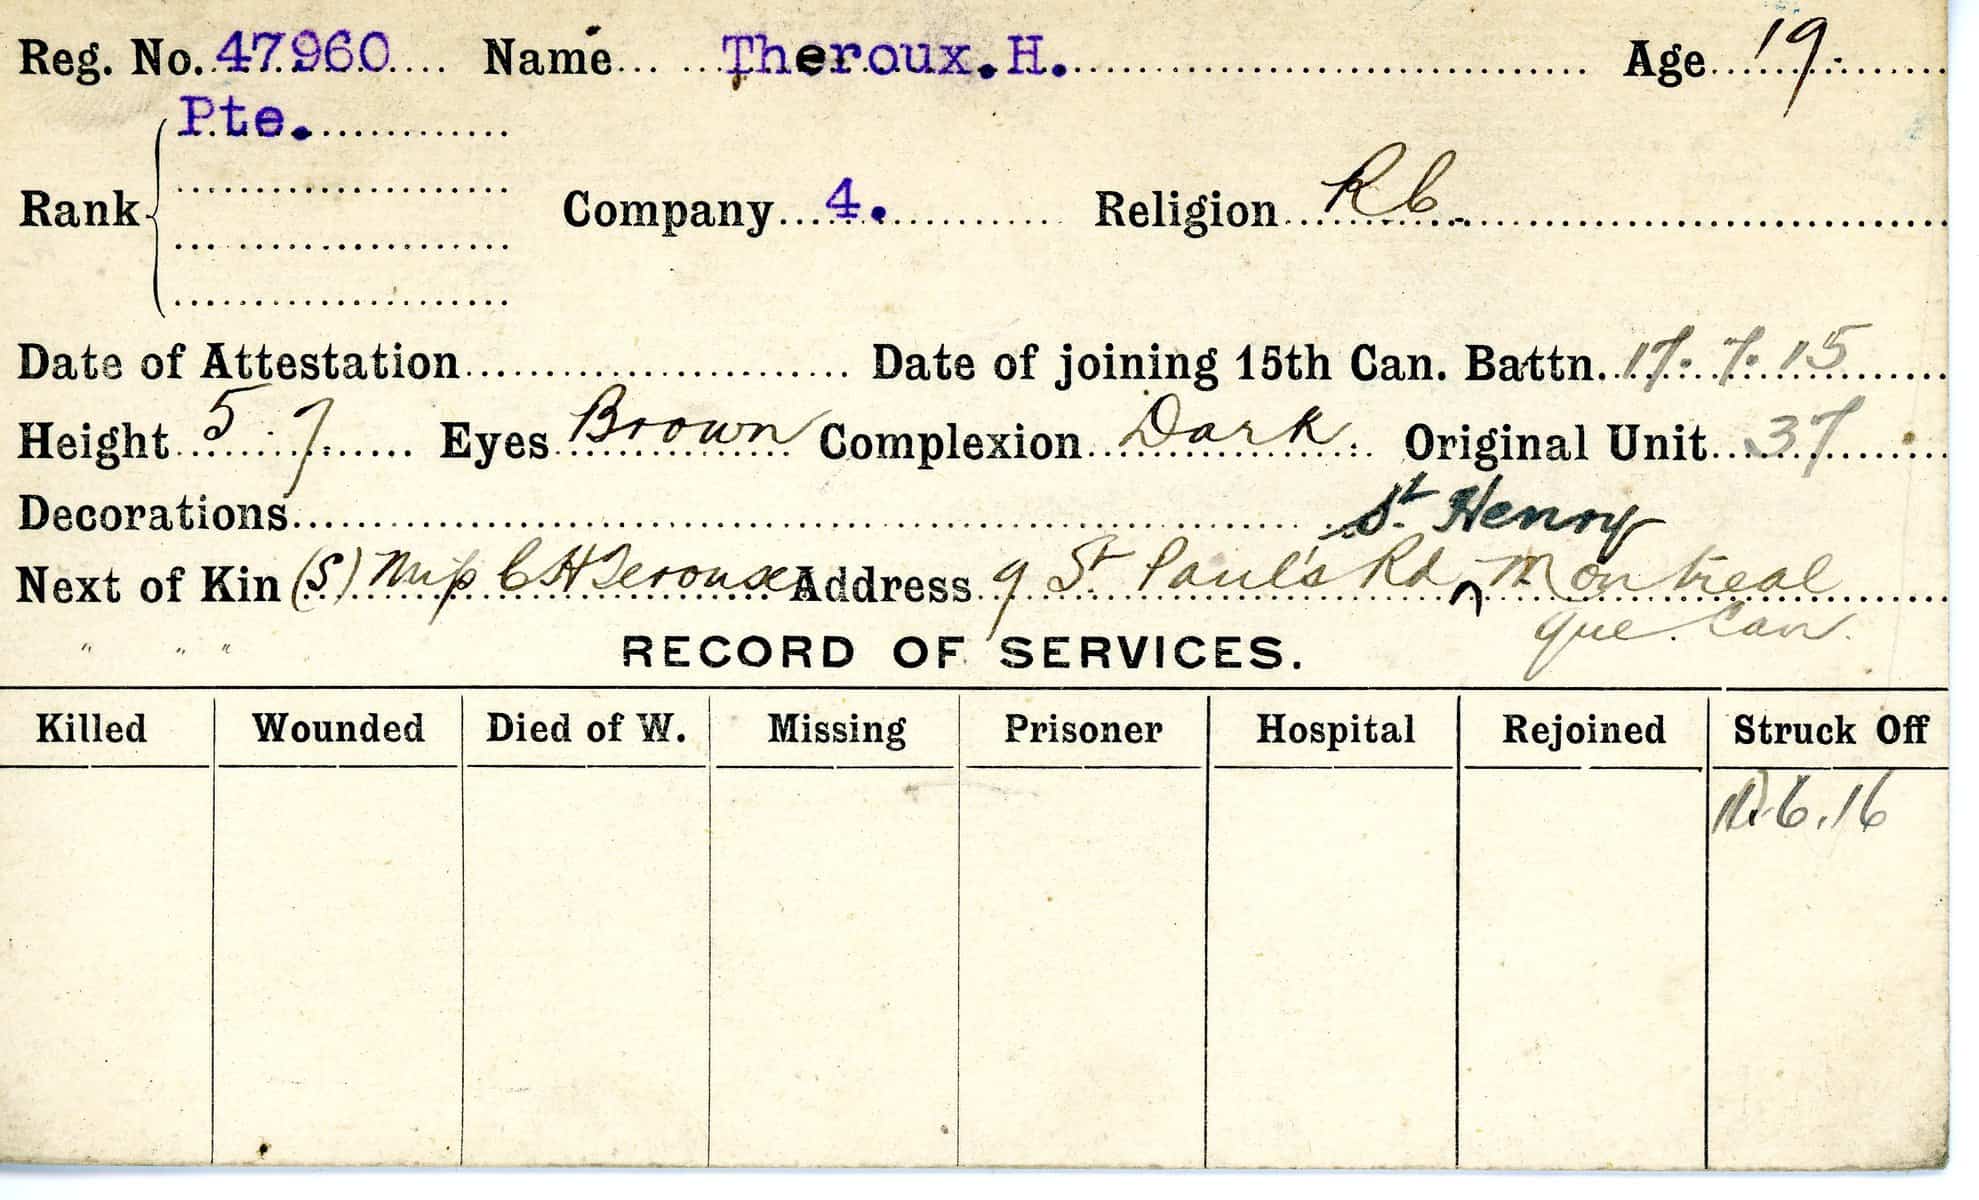 Reg. No. 47960 Name Theroux. H. Age 19.
Pte.
Rank Company 4. Religion RC.
Date of Attestation Date of joining 15th Can. Battn. 17.7.15
Height 5.7. Eyes Brown Complexion Dark. Original Unit 37
Decorations St. Henry
Next of Kin (S) C H Address 9 St. Paul's Rd ^ Montreal
" " " Que. Can.
RECORD OF SERVICES.
Killed Wounded Died of W. Missing Prisoner Hospital Rejoined Struck Off
6.16